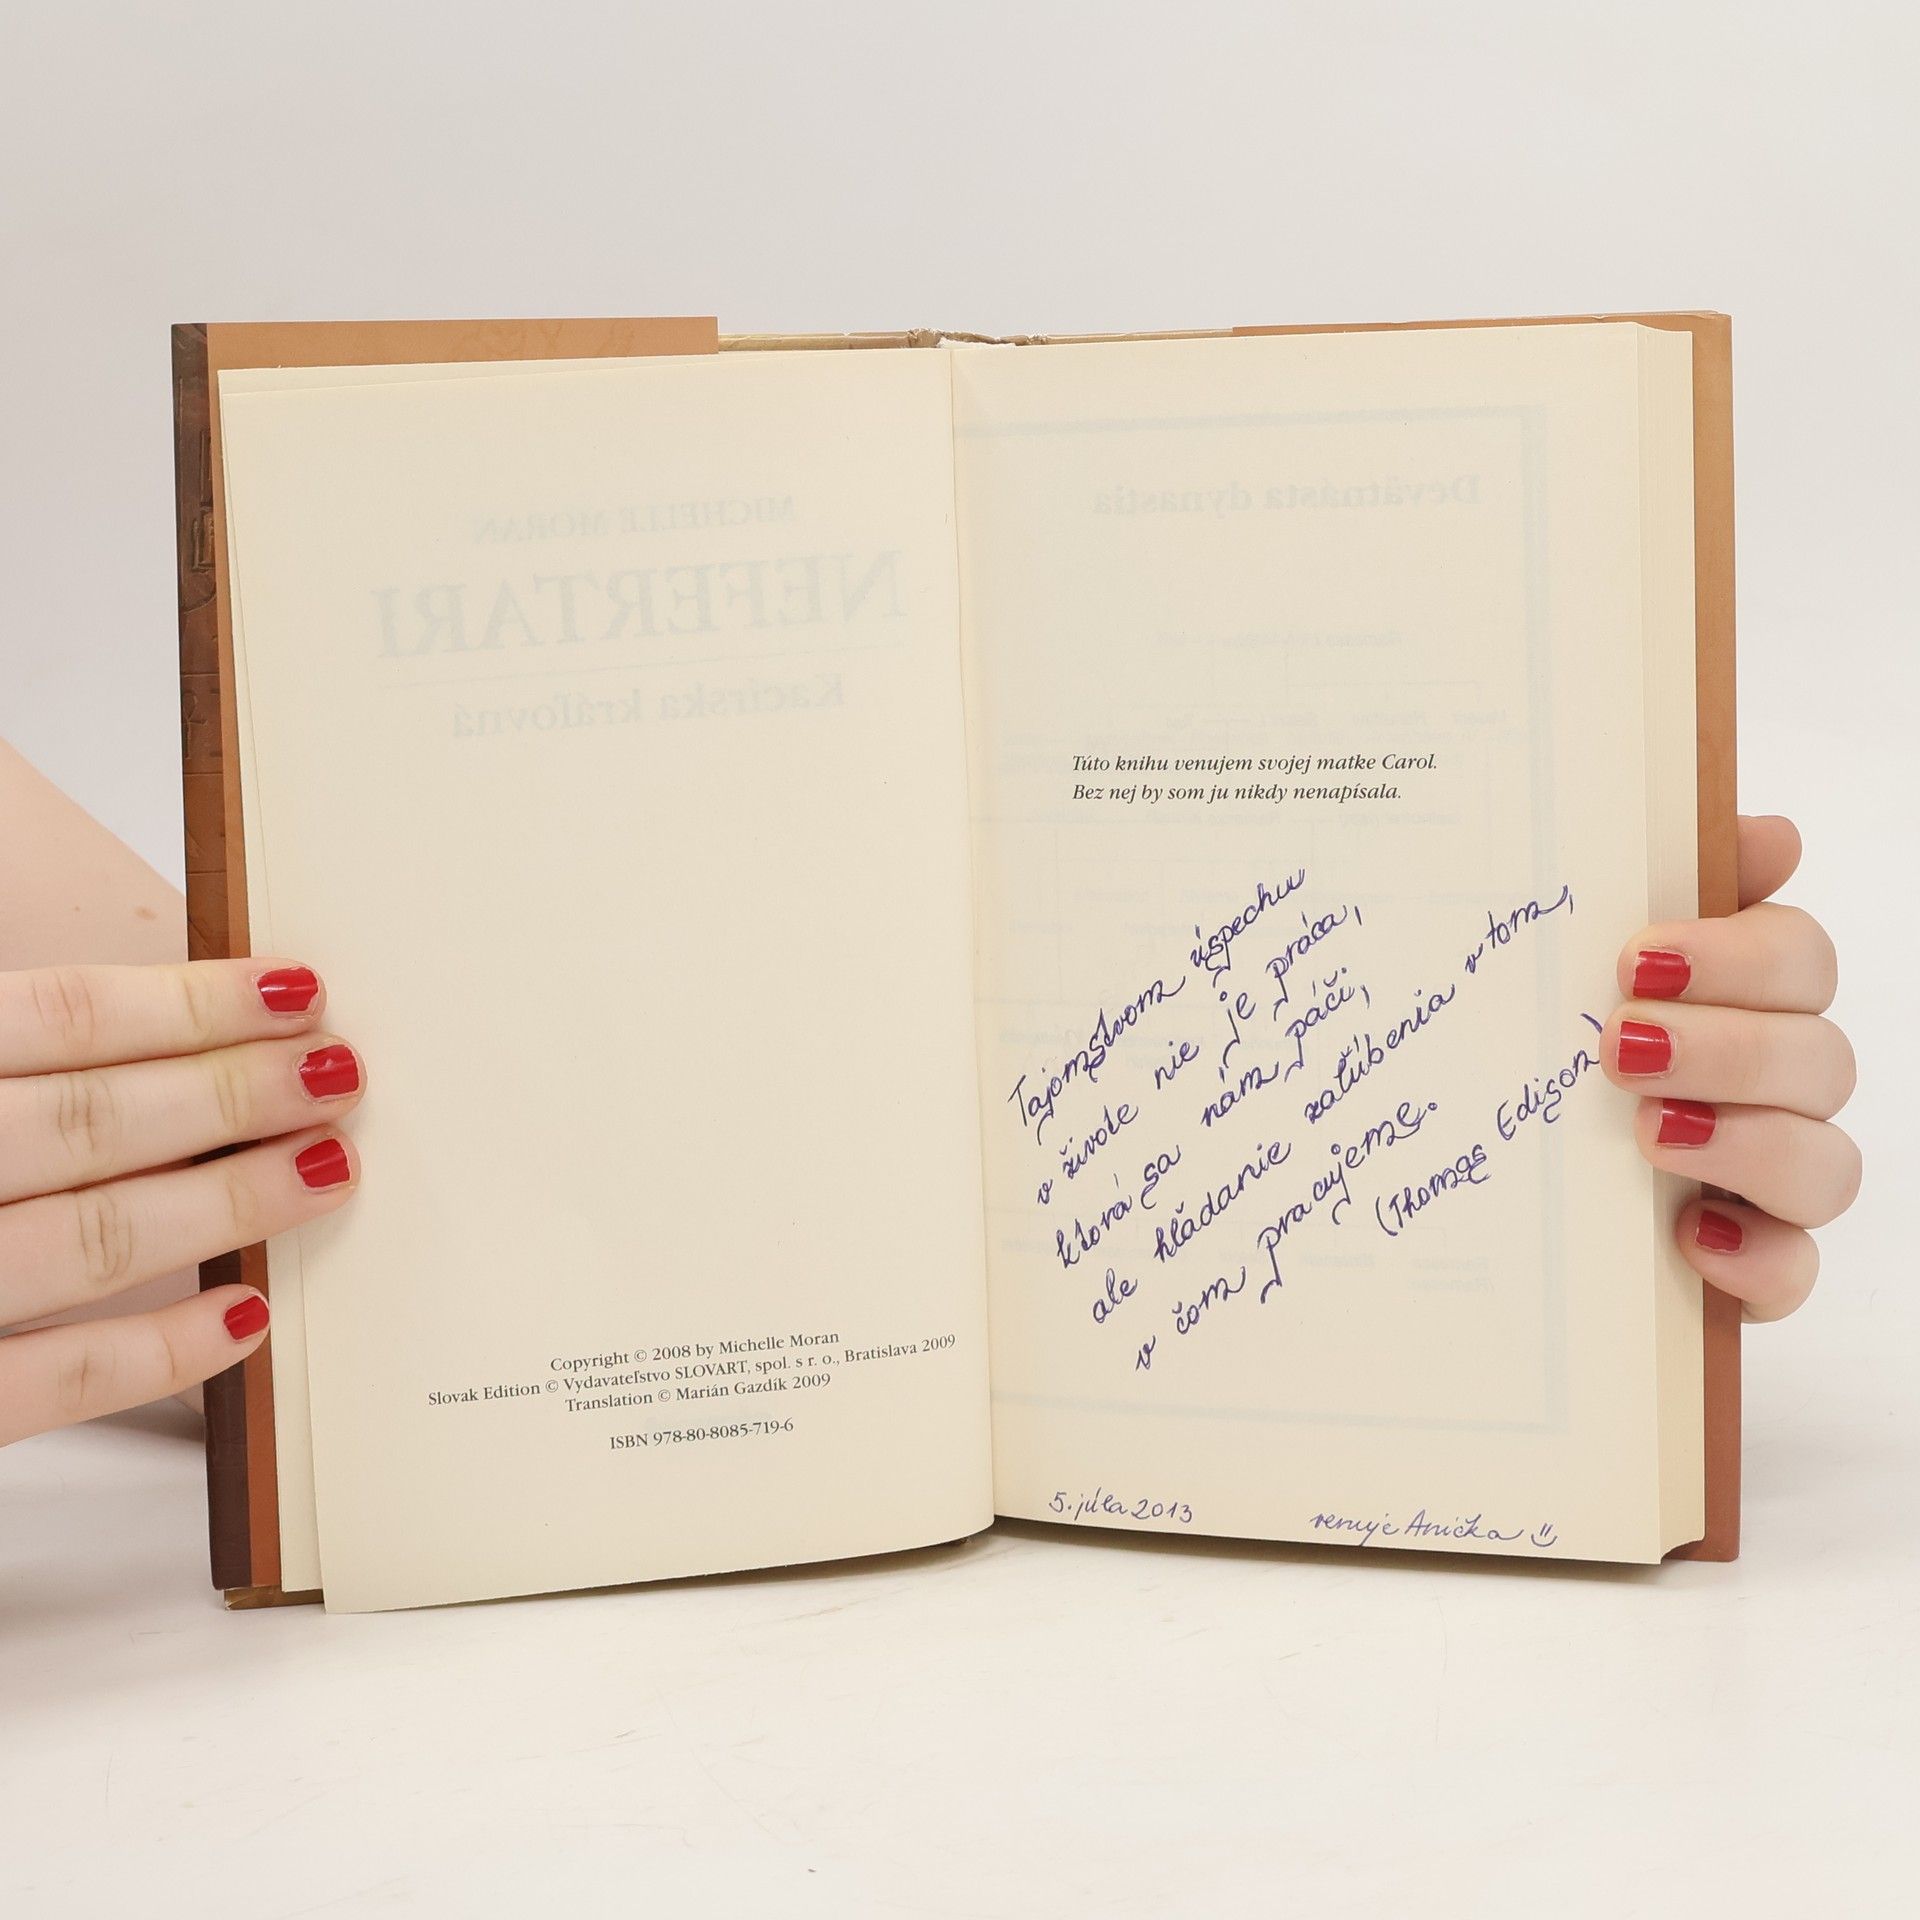 MICHELLE MORAN
NEFERTARI
Kacírska kráľovná
Copyright © 2008 by Michelle Moran
Slovak Edition © Vydavateľstvo SLOVART, spol. s r. o., Bratislava 2009
Translation © Marián Gazdík 2009
ISBN 978-80-8085-719-6
Devätnásta dynastia
Túto knihu venujem svojej matke Carol.
Bez nej by som ju nikdy nenapísala.
Tajomstvom úspechu
v živote nie je práca,
ktorá sa nám páči,
ale hľadanie zaľúbenia v tom,
v čom pracujeme.
(Thomas Edison)
5. júla 2013
venuje Anička